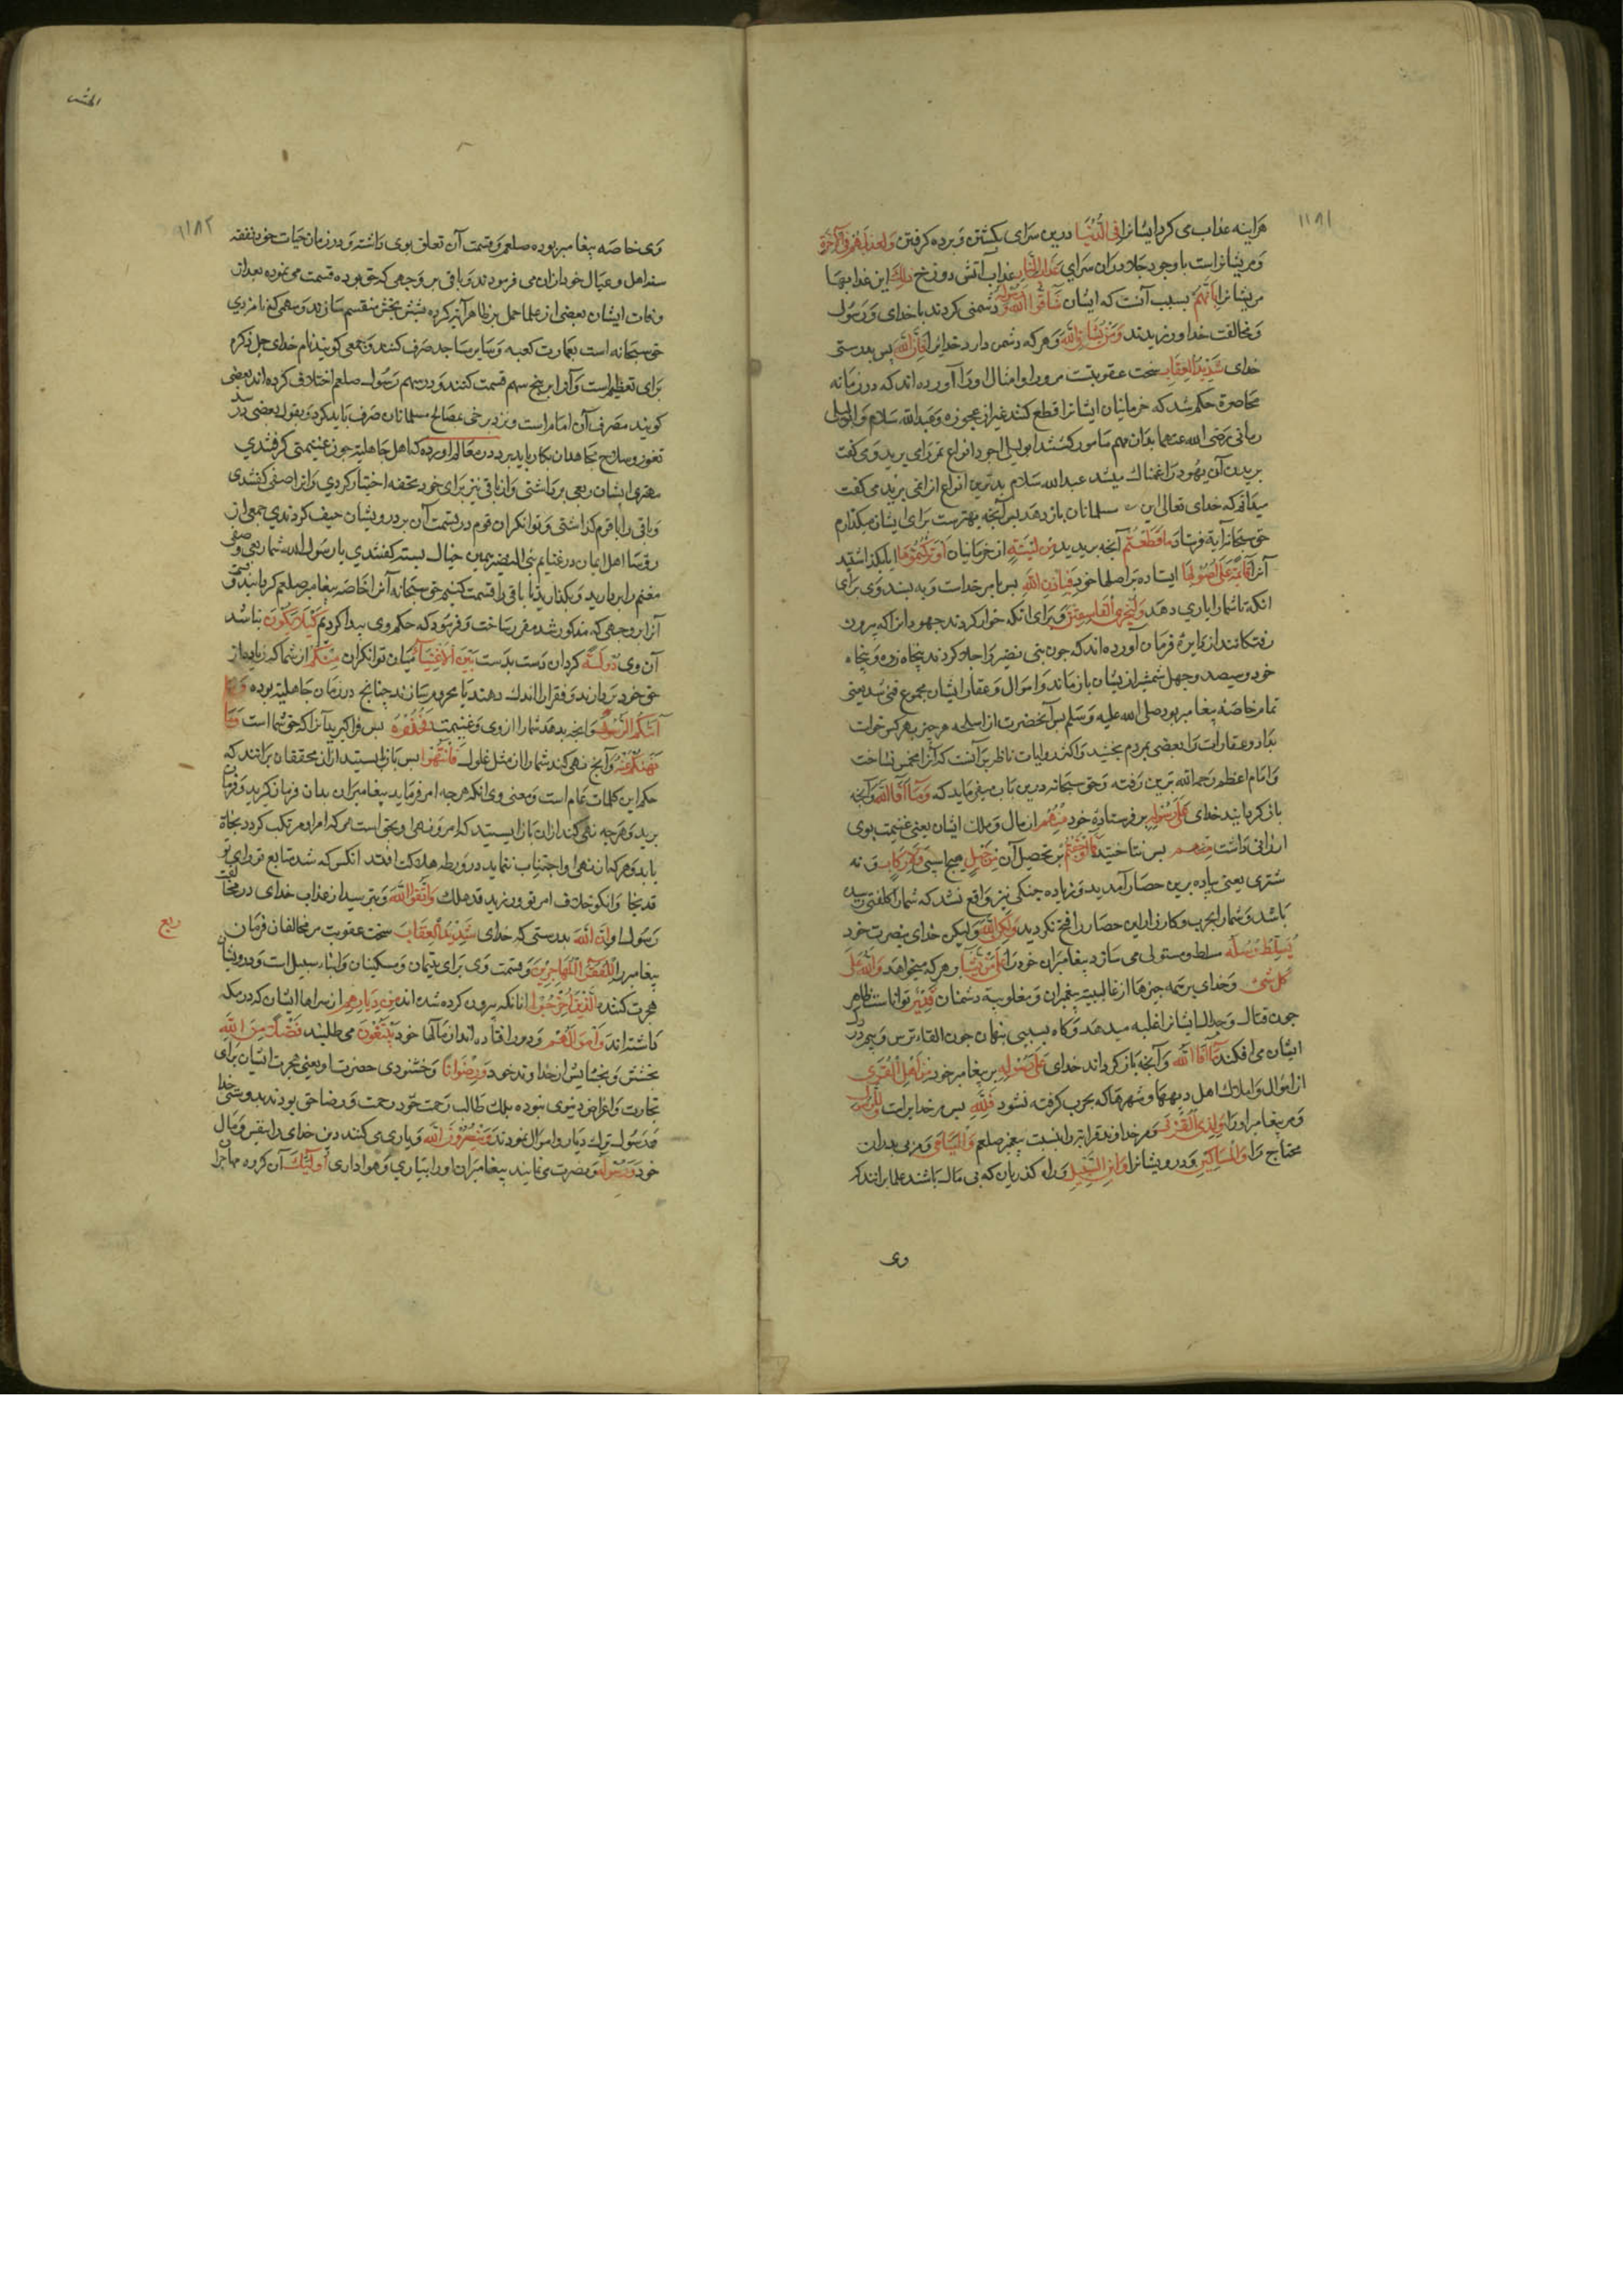 ۱۱۸۱
هراینه عذاب می کرد ایشانرا فی الدُّنْیَا درین سرای بکشتن و برده کرفتن وَلَهُمْ فِی الْآخِرَةِ
و مریشانراست با وجود جلا دران سرای عَذَابُ النَّارِ عذاب آتش دوزخ ذلِكَ این عذابها
مریشانرا بِاَنَّهُمْ بسبب آنست که ایشان شَاقُّوا اللهَ وَرَسُولَهُ دشمنی کردند با خدای و رسول
و مخالفت خدا ورزیدند وَمَنْ یُشَاقِّ اللهَ و هر که دشمن دارد خدایرا فَاِنَّ اللهَ پس بدرستی
خدای شَدِیدُ الْعِقَابِ سخت عقوبتست مرورا و امثال اورا آورده اند که در زمانه
محاصره حکم شد که خرمابنان ایشانرا قطع کنند غیر از عجوزه و عبدالله سلام و ابولیلی
رمانی رضی الله عنهما بدان مهم مامور کشتند ابولیلی اجود انواع تمر را می برید و می کفت
بریدن آن یهود را غمناك میشد عبدالله سلام بدترین انواع انرا می برید می کفت
میدانم که خدای تعالی این سلمانان باز دهد پس آنچه بهترست برای ایشان میکذارم
حق سبحانه آیة فرستاد مَا قَطَعْتُمْ آنچه بریدید مِنْ لِینَةٍ از خرمابنان اَوْ تَرَکْتُمُوهَا یا بکذاشتید
آنرا قَائِمَةً عَلَی اُصُولِهَا ایستاده بر اصلها خود فَبِاِذْنِ اللهِ پس بامر خداست و به بسندوی برای
انکه تا شمارا یاری دهد وَلِیُخْزِیَ الْفَاسِقِینَ و برای انکه خوار کردند جهودانرا که بیرون
رفتکانند از دایرهٔ فرمان آورده اند که چون بنی نضیر را جلا کردند پنجاه زره و پنجاه
خود و سیصد و چهل شمشیر از یشان باز ماند و اموال و عقار ایشان مجموع فی شد یعنی
تمام خاصّه پیغامبر بود صلی الله علیه و سلم پس آنحضرت از اسلحه هر چیز بهر کس خواست
بداد و عقارات را بعضی بمردم بخشید و اکثر روایات ناظر برآنست که آنرا مخمس نساخت
و امام اعظم رحمه الله برین رفته و حق سبحانه درین باب میفرماید که وَمَا اَفَاءَ اللهُ و آنچه
باز کردانید خدای عَلَی رَسُولِهِ بر فرستادهٔ خود مِنْهُمْ از مال و ملك ایشان یعنی غنیمت بوی
ارزانی داشت پس نتاختید فَمَا اَوْجَفْتُمْ بر تحصیل آن مِنْ خَیْلٍ هیچ اسپی وَلَا رِکَابٍ و نه
شتری یعنی پیاده برین حصار آمدید و زیاده جنکی نیز واقع نشد که شمارا کلفتی رسیده
باشد و شما بحرب و کارزار این حصار را فتح نکردید وَلکِنَّ اللهَ و لیکن خدای بنصرت خود
یُسَلِّطُ رُسُلَهُ مسلط و مستولی می سازد پیغامبران خود را عَلَی مَنْ یَشَاءُ بر هر که میخواهد وَاللهُ عَلَی
کُلِّ شَیْءٍ و خدای بر همه چیزها از غالبیت پیغمبران و مغلوبیة دشمنان قَدِیرٌ تواناست ظاهر
چون قتال و جدال ایشانرا غلبه میدهد و کاه بسببی پنهان چون القاء ترس و بیم در دل
ایشان می افکند مَا اَفَاءَ اللهُ و آنچه باز کرداند خدای عَلَی رَسُولِهِ بر پیغامبر خود مِنْ اَهْلِ الْقُرَی
از اموال و املاك اهل دیهها و شهرها که بحرب کرفته نشود فَلِلّهِ پس مر خدایراست وَلِلرَّسُولِ
و مر پیغامبر اورا وَلِذِی الْقُرْبَی و مر خداوند قرابترا بنسبت پیغمبر صلعم وَالْیَتَامَی و مر بی پدران
محتاج را وَالْمَسَاکِینِ و درویشانرا وَابْنِ السَّبِیلِ و راه کذریان که بی مال باشند علما برانند که
وی
الحشر
۱۱۸۲
وی خاصّه پیغامبر بوده صلعم و قسمت آن تعلق بوی داشته و در زمان حیات خود نفقه
سنه اهل و عیال خود ازان می فرمودند و باقی بر وجهی که حق بوده قسمت می نموده بعد از
وفات ایشان بعضی از علما حمل بر ظاهر آیه کرده بشش بخش منقسم سازند و سهمی که نامزد
حق سبحانه است بعمارت کعبه و سایر مساجد صرف کنند و جمعی کویند نام خدای جل ذکره
برای تعظیم است و آنرا بر پنج سهم قسمت کنند و در سهم رسول صلعم اختلاف کرده اند بعضی
کویند مصرف آن امام راست و نزد برخی بمصالح مسلمانان صرف باید کرد و بقول بعضی در سد
ثغور و سلاح مجاهدان بکار باید برد در معالم آورده که اهل جاهلیة چون غنیمتی کرفتندی
مهتر ایشان ربعی برداشتی و از باقی نیز برای خود تحفه اختیار کردی و آنرا صفی کفتندی
و باقی را با قوم کذاشتی و توانکران قوم در قسمت آن بر درویشان حیف کردندی جمعی از
رؤسا اهل ایمان در غنایم بنی النضیر همین خیال بسته کفتندی یا رسول الله شما ربعی و صفی
مغنم را بردارید و بکذارید تا باقی را قسمت کنیم حق سبحانه آنرا خاصّه پیغامبر صلعم کردانید و قسمت
آنرا بر وجهی که مذکور شد مقرر ساخت و فرمود که حکم وی پیدا کردیم کَیْلَا یَکُونَ تا نباشد
آن وی دُولَةً کردان دست بدست بَیْنَ الْاَغْنِیَاءِ میان توانکران مِنْکُمْ از شما که زیاده از
حق خود بردارند و فقرا را اندك دهند یا محروم سازند چنانچ در زمان جاهلیة بوده وَمَا
آتَیکُمُ الرَّسُولُ و آنچه بدهد شمارا از وی و غنیمت فَخُذُوهُ پس فراکیرید آنرا که حق شما است وَمَا
نَهَیکُمْ عَنْهُ و آنچ نهی کند شمارا از مثل غلول فَانْتَهُوا پس باز ایستید ازان محققان برانند که
حکم این کلمات عام است و معنی وی انکه هرچه امر فرماید پیغامبران بدان فرمان کیرید و فرمان
برید و هرچه نهی کند ازان باز ایستید که امر و نهی او بحق است هر که امر او مرتکب کردد نجاة
یابد و هر که از نهی او اجتناب ننماید در ورطهٔ هلاکت افتد انکس که شد متابع امر تو
قد نجا وانکو خلاف امر تو ورزید قد هلك وَاتَّقُوا اللهَ و بترسید از عذاب خدای در مخالفت
رسول او اِنَّ اللهَ بدرستی که خدای شَدِیدُ الْعِقَابِ سخت عقوبت مر مخالفان فرمان
ربع
پیغامبر را لِلْفُقَرَاءِ الْمُهَاجِرِینَ و قسمت وی برای یتیمان و مسکینان و ابناء سبیل است و درویشان
هجرت کننده الَّذِینَ اُخْرِجُوا انانکه بیرون کرده شده اند مِنْ دِیَارِهِمْ از سراها ایشان که در مکه
داشته اند وَاَمْوَالِهِمْ و دور افتاده اند از مالها خود یَبْتَغُونَ می طلبند فَضْلًا مِنَ اللهِ
بخشش و بخشایش از خداوند خود وَرِضْوَانًا و خشنودی حضرت او یعنی هجرت ایشان برای
تجارت و اغراض دنیوی نبوده بلك طالب رحمت خود رحمت و رضا حق بودند و بدوستی خدا
و رسول ترك دیار و اموال نمودند وَیَنْصُرُونَ اللهَ و یاری می کنند دین خدای را بنفس و مال
خود وَرَسُولَهُ و نصرت می نمایند پیغامبران اورا بیاری و هواداری اُولئِكَ آن کروه مهاجر